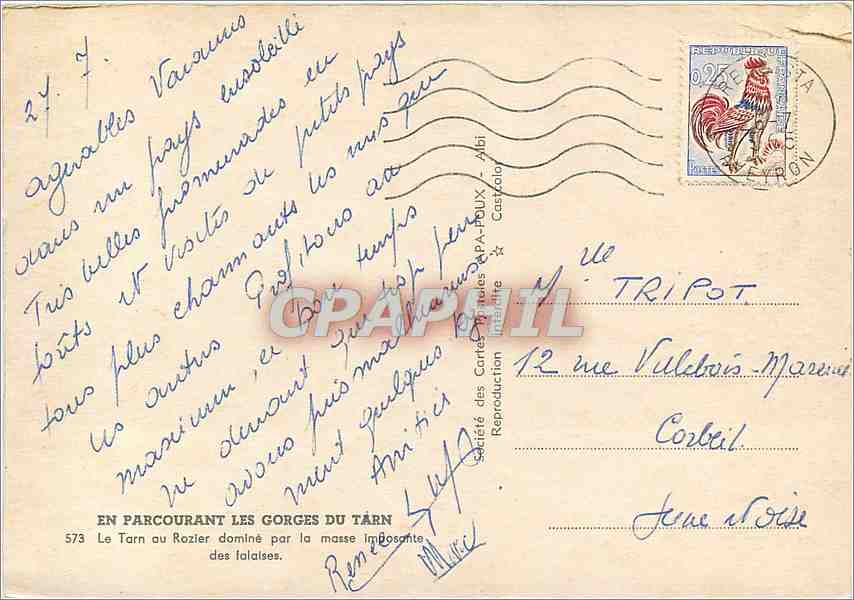 27. 7.
agréables Vacances
dans un pays ensoleillé
Très belles promenades en
forêts et visites de petits pays
tous plus charmants les uns que
les autres Profitons au
maximum, ce bon temps
ne durant que trop peu
avons pris malheureuse-
ment quelques
Amitiés
Renée
EN PARCOURANT LES GORGES DU TARN
573 Le Tarn au Rozier dominé par la masse imposante
des falaises.
Société des Cartes Postales APA-POUX - Albi
Reproduction interdite ☆ Castcolor
CPAPHIL
REPUBLIQUE FRANÇAISE
0,25
POSTES
AVEYRON
Mlle TRIPOT.
12 rue Villebois-Mareuil
Corbeil.
Seine et Oise